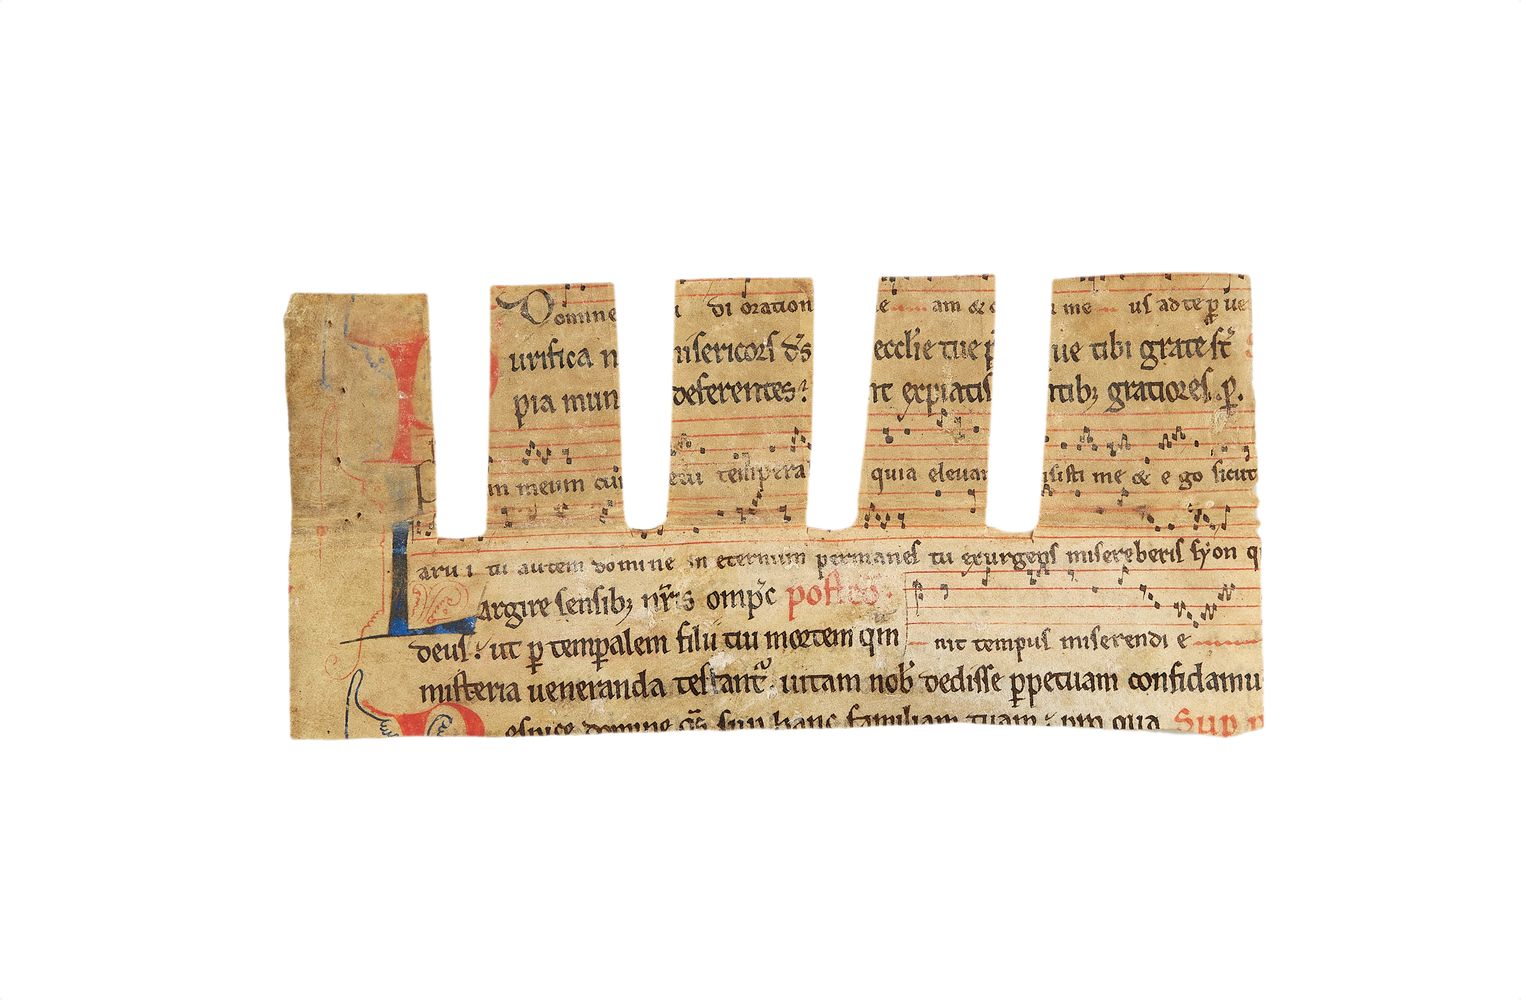 Domine di oration e am & me us ad te ꝑ ue
urifica n misericors d̄s eccl̄ie tue ue tibi grate sc̄
pia mun deferentes: nt expiatis ntibꝫ gratiores. ꝑ.
m meum cū tu temꝑera quia eleuan sisti me & e go sicut
aru i tu autem domine in eternum permanes tu exurgens misereberis syon q
Largire sensibꝫ nr̄is omp̄c postco
deus: ut ꝑ temꝑalem filii tui mortem qm nit tempus miserendi e
misteria ueneranda testant. uitam nob̄ dedisse ꝑpetuam confidamu
Respice domine q̄s sup hanc familiam tuam: pro qua Sup p